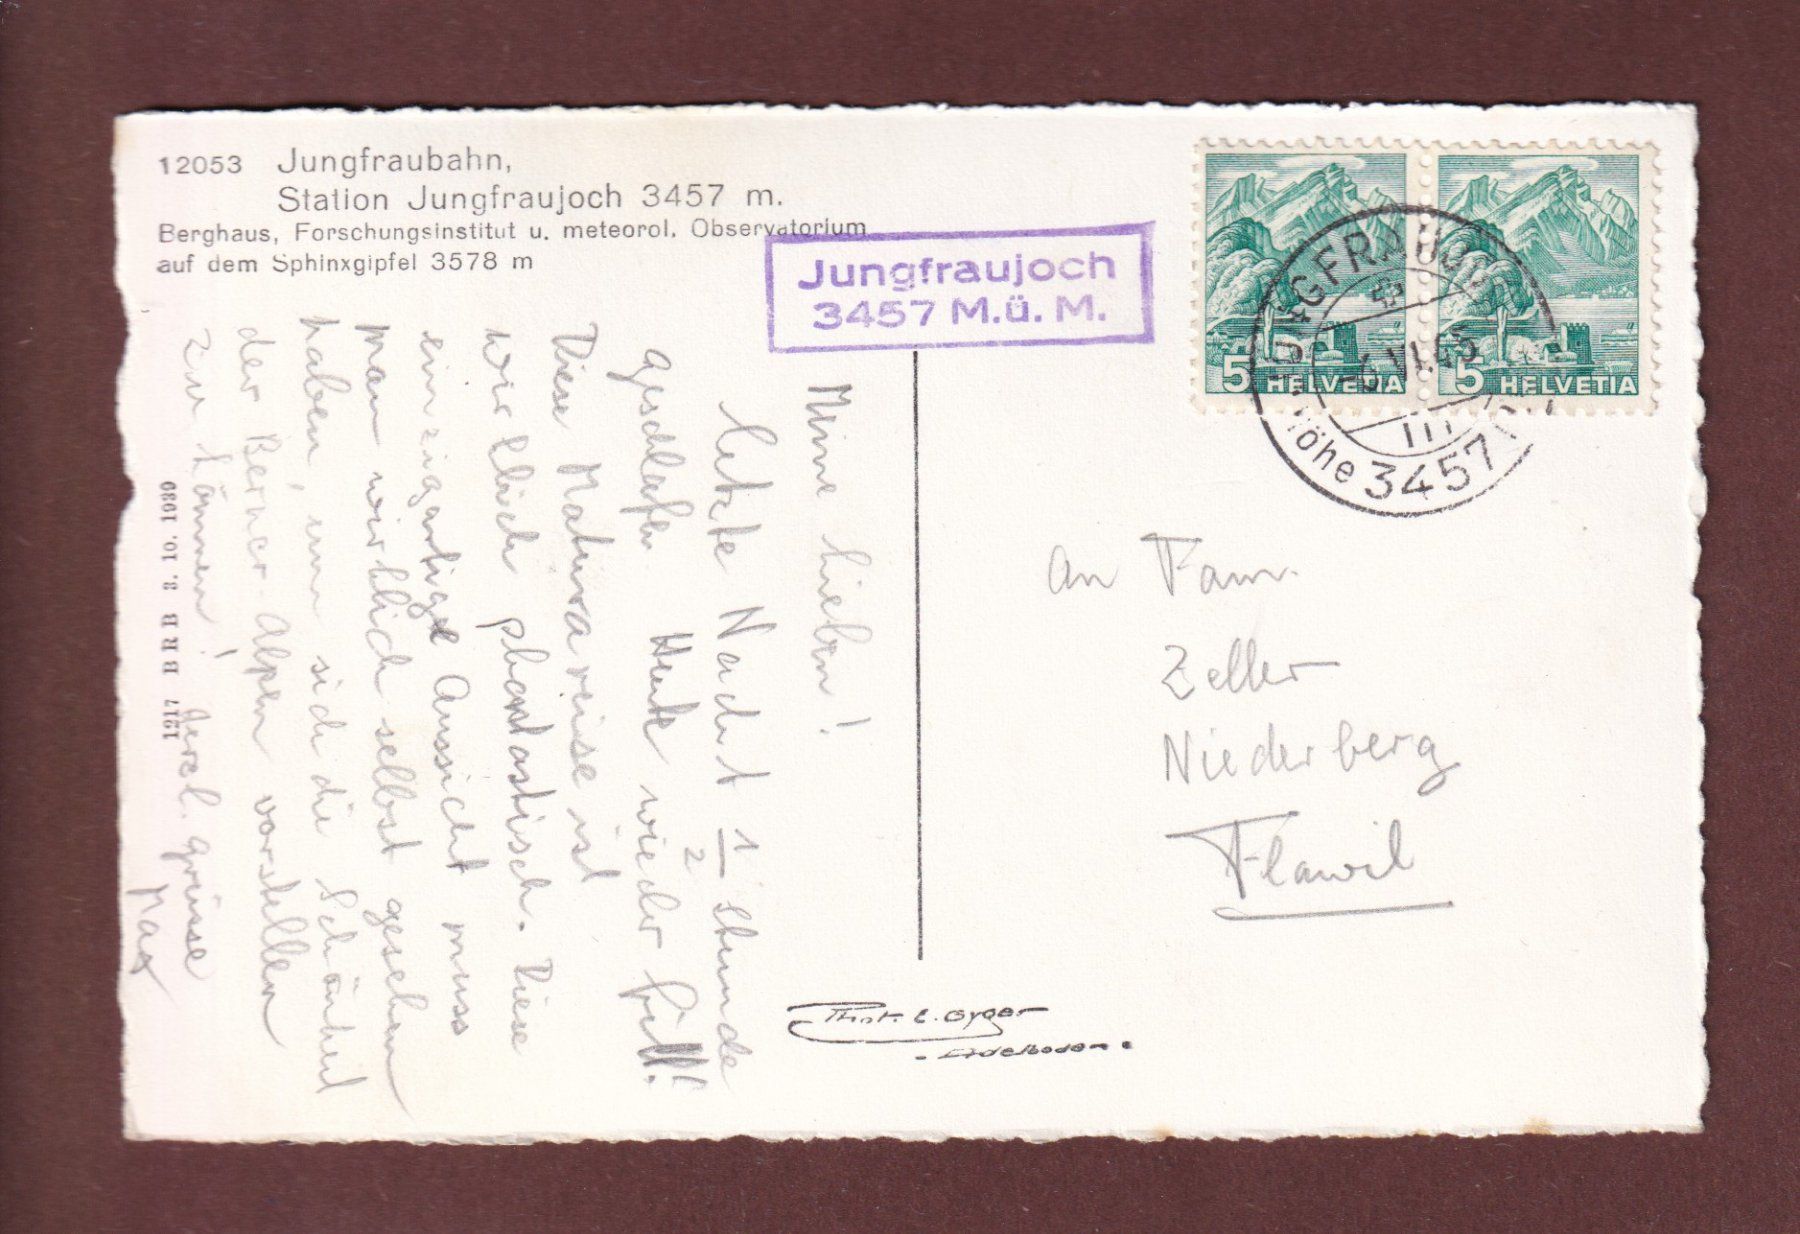 12053 Jungfraubahn,
Station Jungfraujoch 3457 m.
Berghaus, Forschungsinstitut u. meteorol. Observatorium
auf dem Sphinxgipfel 3578 m
Jungfraujoch
3457 M.ü.M.
5 HELVETIA
5 HELVETIA
JUNGFRAUJOCH
6.VI.45
Höhe 3457
Meine Lieben!
Letzte Nacht 1/2 Stunde
geschlafen. Heute wieder
Diese Maturareise ist
wirklich phantastisch. Diese
einzigartige Aussicht muss
man wirklich selbst gesehen
haben, um sich die Schönheit
der Berner-Alpen vorstellen
zu können! Herzl. Grüsse
Max
1917 BRB 3.10.1939
An Fam.
Zeller
Niederberg
Flawil
Phot. E. Gyger
- Adelboden -